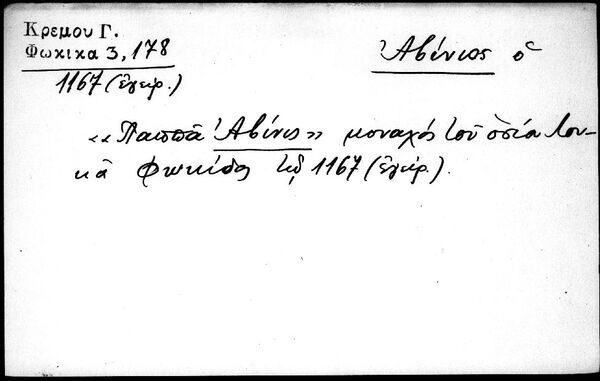 Κρεμου Γ.
Φωκικα 3, 178
1167 (ἔγγρ.)
Ἀβένιος ὁ
«Παππᾶ Ἀβένις» μοναχός τοῦ ὁσία Λου-
κᾶ Φωκίδος τῷ 1167 (ἔγγρ.).